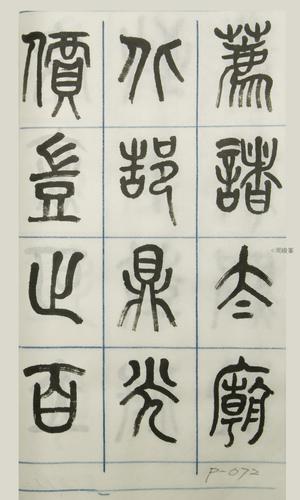 薦諸太廟
比郜鼎光
價豈止百
P-072